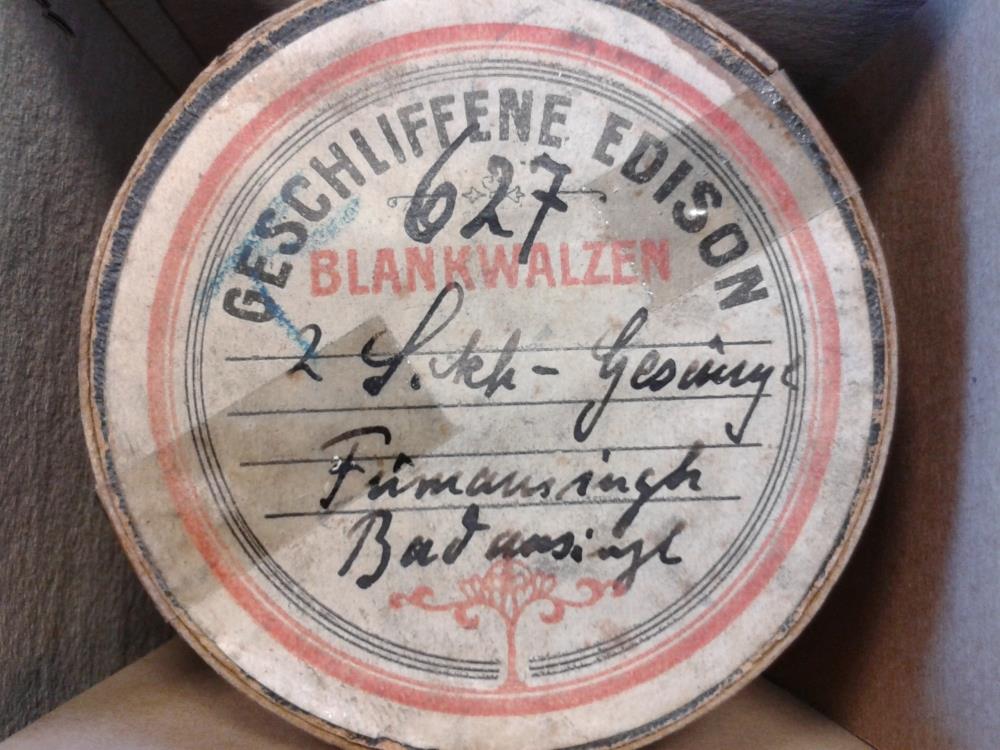 GESCHLIFFENE EDISON
627
BLANKWALZEN
2 Sikh - Gesänge
Fürmansingh
Badansingh